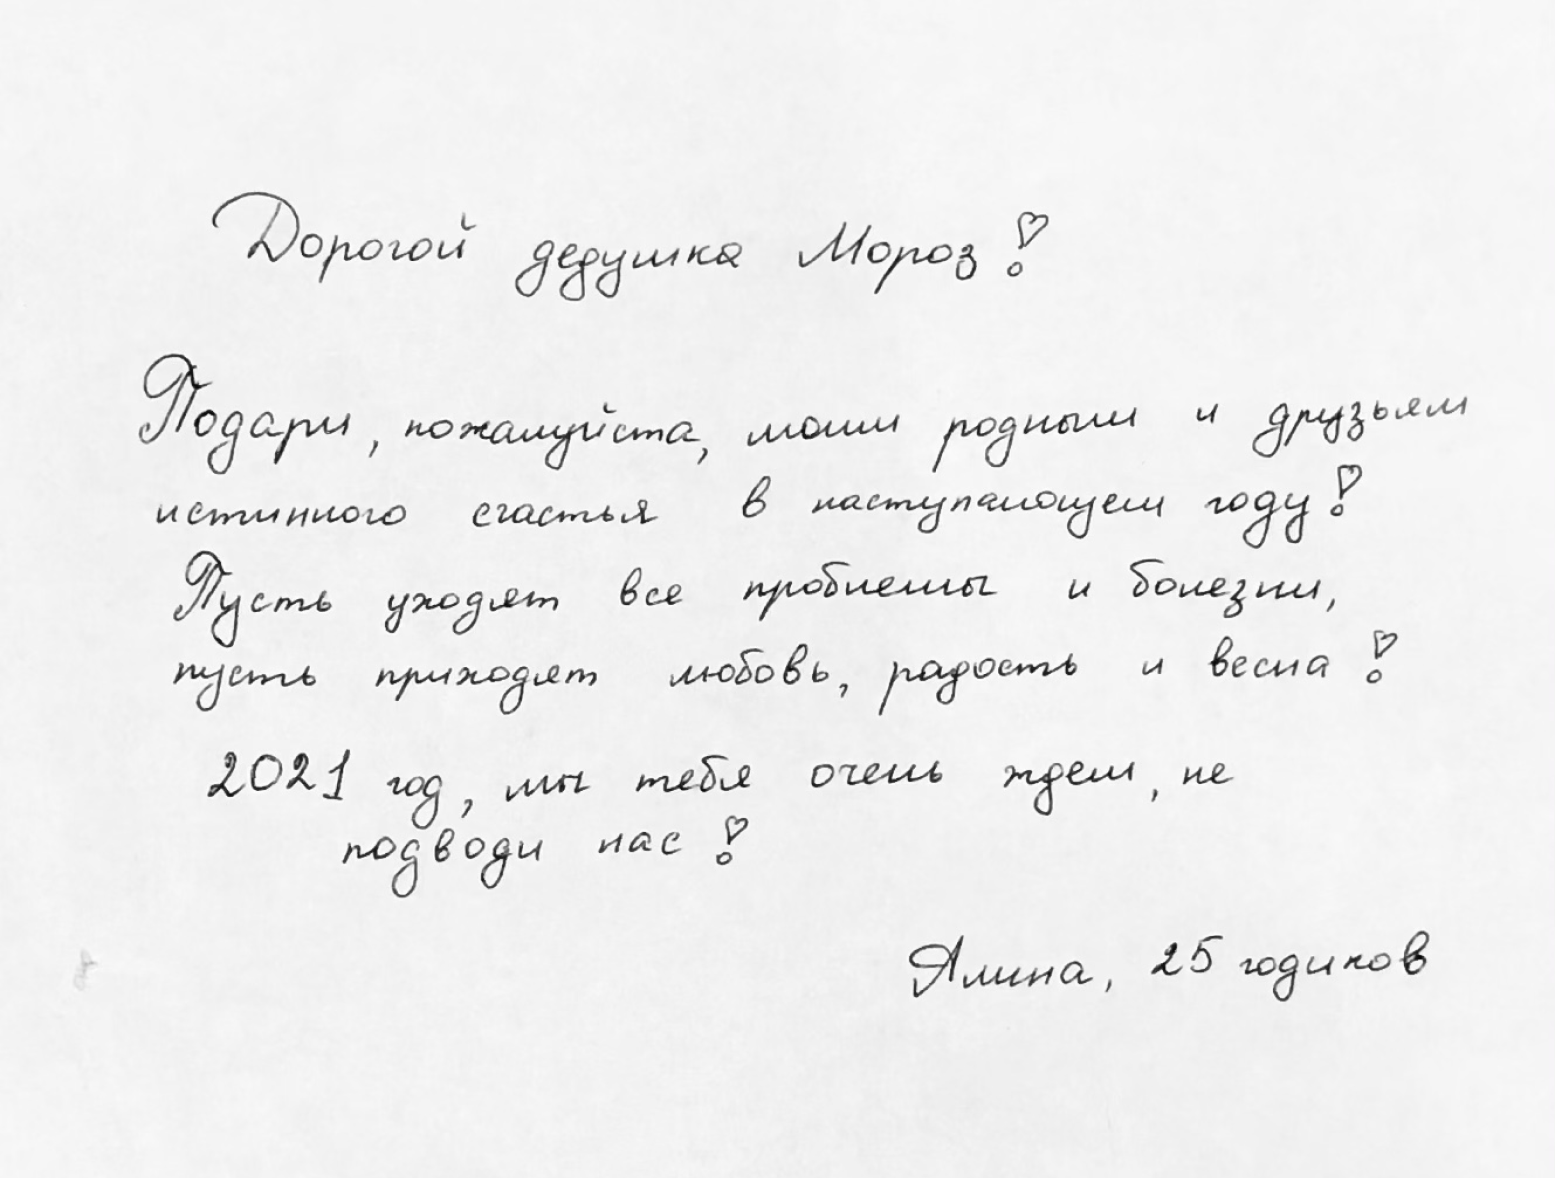 Дорогой дедушка Мороз!
Подари, пожалуйста, моим родным и друзьям
истинного счастья в наступающем году!
Пусть уходят все проблемы и болезни,
пусть приходят любовь, радость и весна!
2021 год, мы тебя очень ждем, не
подводи нас!
Алина, 25 годиков